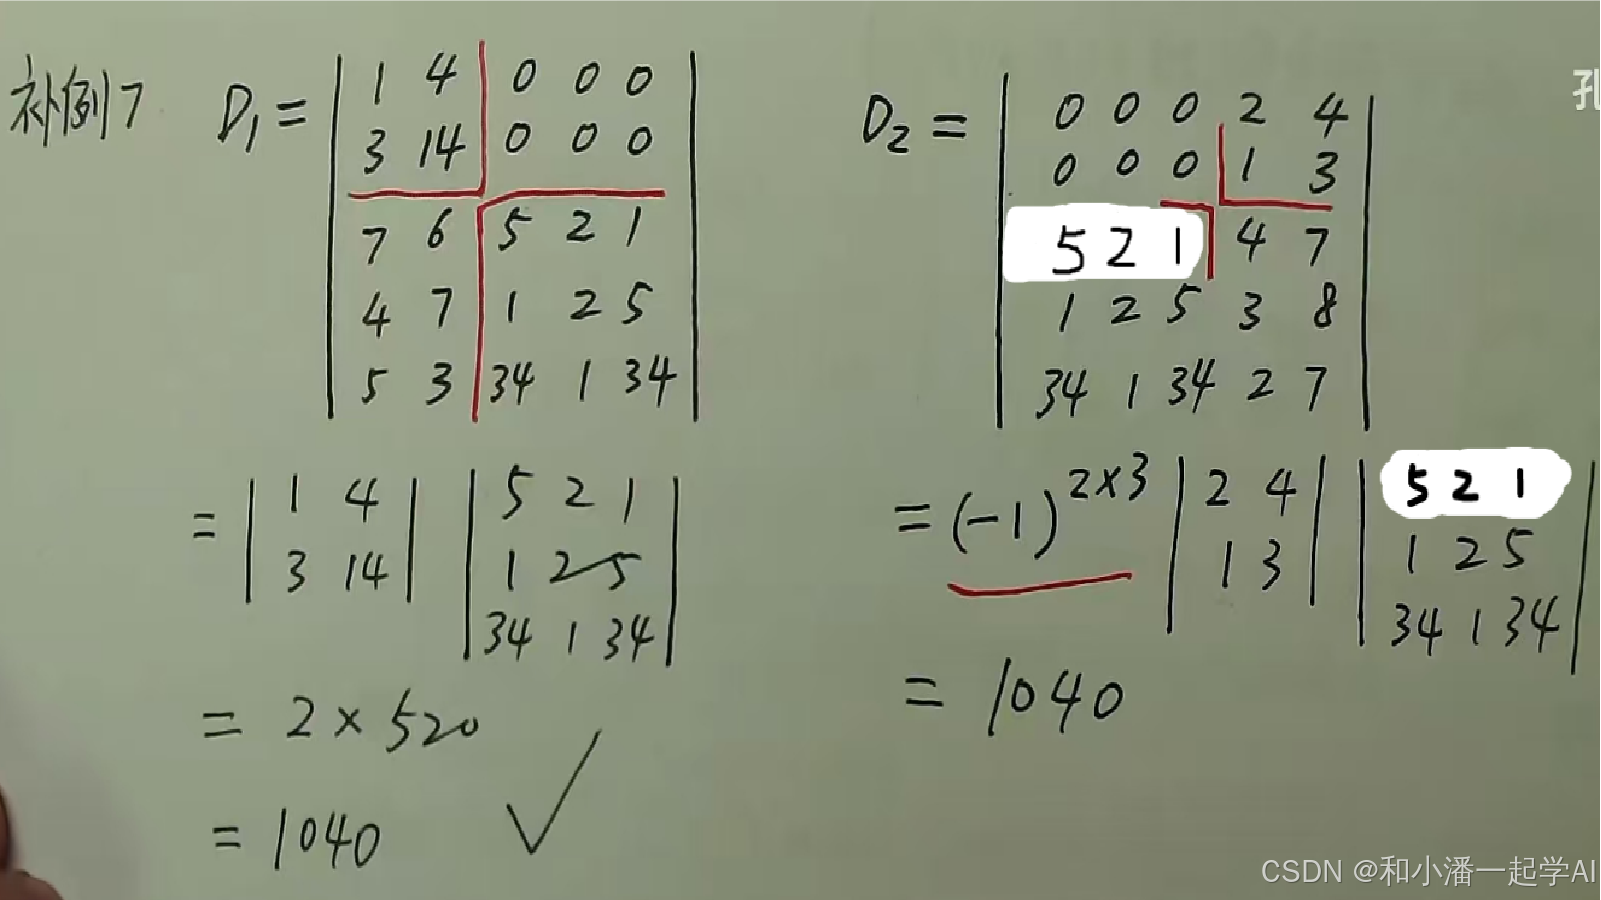 补例7 D₁ =
1 4 0 0 0
3 14 0 0 0
7 6 5 2 1
4 7 1 2 5
5 3 34 1 34
= | 1 4 | | 5 2 1 |
| 3 14 | | 1 2 5 |
| 34 1 34 |
= 2 × 520
= 1040 ✓
D₂ =
0 0 0 2 4
0 0 0 1 3
5 2 1 4 7
1 2 5 3 8
34 1 34 2 7
= (-1)^2×3 | 2 4 | | 5 2 1 |
| 1 3 | | 1 2 5 |
| 34 1 34 |
= 1040
CSDN @和小潘一起学AI